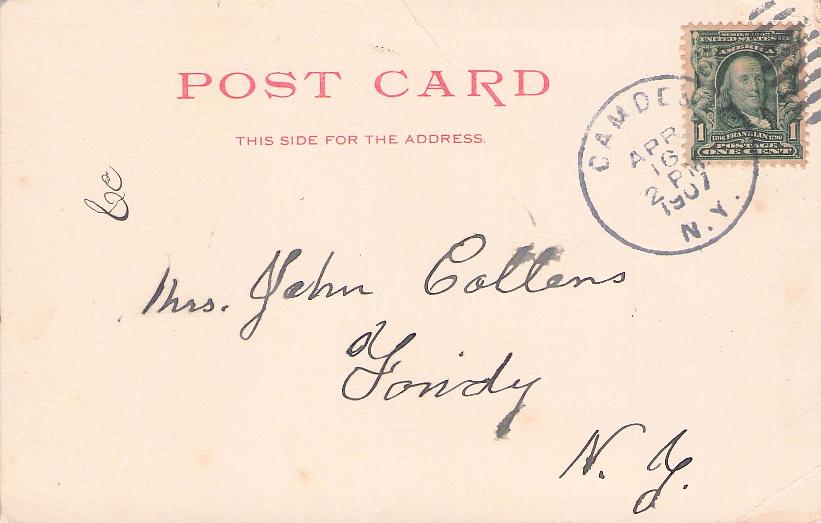 POST CARD
THIS SIDE FOR THE ADDRESS.
SERIES 1902
UNITED STATES OF
AMERICA
1 1706 FRANKLIN 1790 1
POSTAGE
ONE CENT
CAMDEN
APR
16
2 PM
1907
N.Y.
Mrs. John Collens
N. Y.